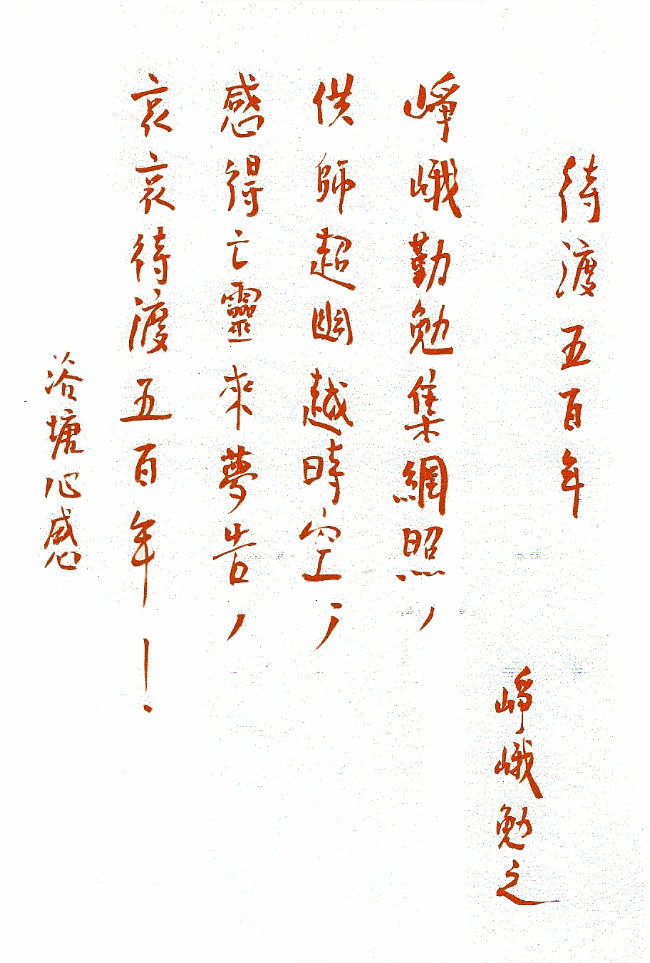 待渡五百年
崢嶸勉之
崢嶸勤勉集網照，
供師超幽越時空，
感得亡靈來夢告，
哀哀待渡五百年！
浴塘心感